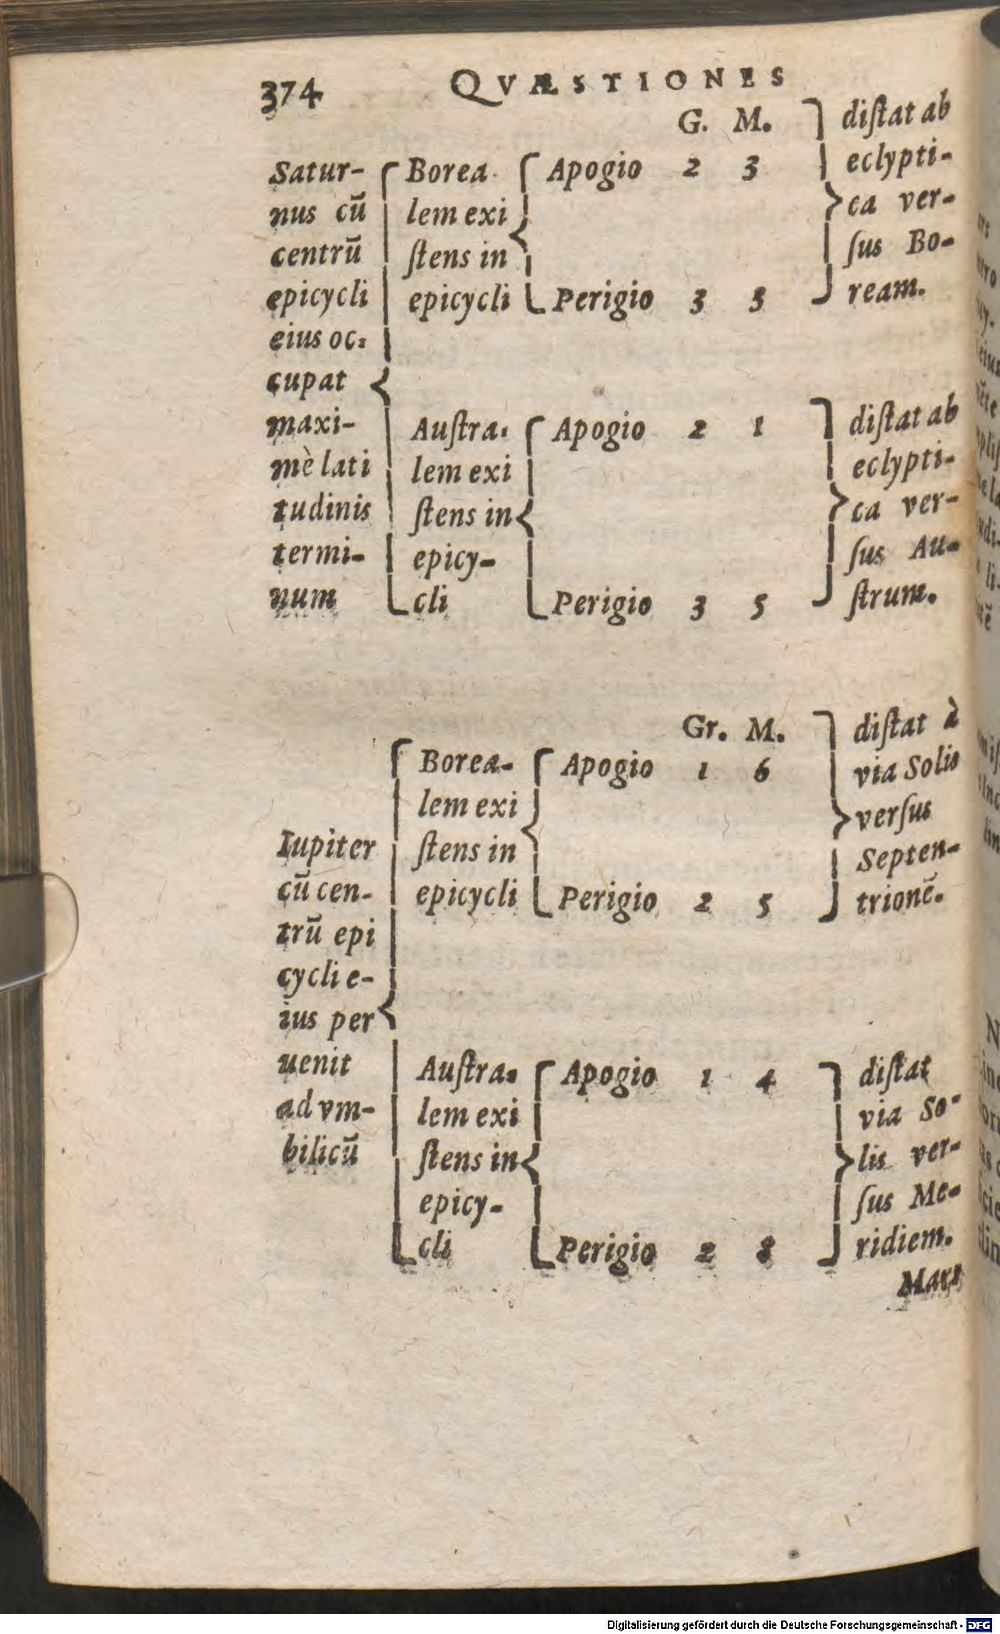 374 QVÆSTIONES
G. M.
Satur-
nus cū
centrū
epicycli
eius oc-
cupat
maxi-
mè lati
tudinis
termi-
num
Borea
lem exi
ſtens in
epicycli
Apogio 2 3
Perigio 3 3
diſtat ab
eclypti-
ca ver-
ſus Bo-
ream.
Auſtra-
lem exi
ſtens in
epicy-
cli
Apogio 2 1
Perigio 3 5
diſtat ab
eclypti-
ca ver-
ſus Au-
ſtrum.
Gr. M.
Iupiter
cū cen-
trū epi
cycli e-
ius per
uenit
ad vm-
bilicū
Borea-
lem exi
ſtens in
epicycli
Apogio 1 6
Perigio 2 5
diſtat à
via Solis
verſus
Septen-
trionē.
Auſtra-
lem exi
ſtens in
epicy-
cli
Apogio 1 4
Perigio 2 8
diſtat
via So-
lis ver-
ſus Me-
ridiem.
Mars
Digitalisierung gefördert durch die Deutsche Forschungsgemeinschaft - DFG